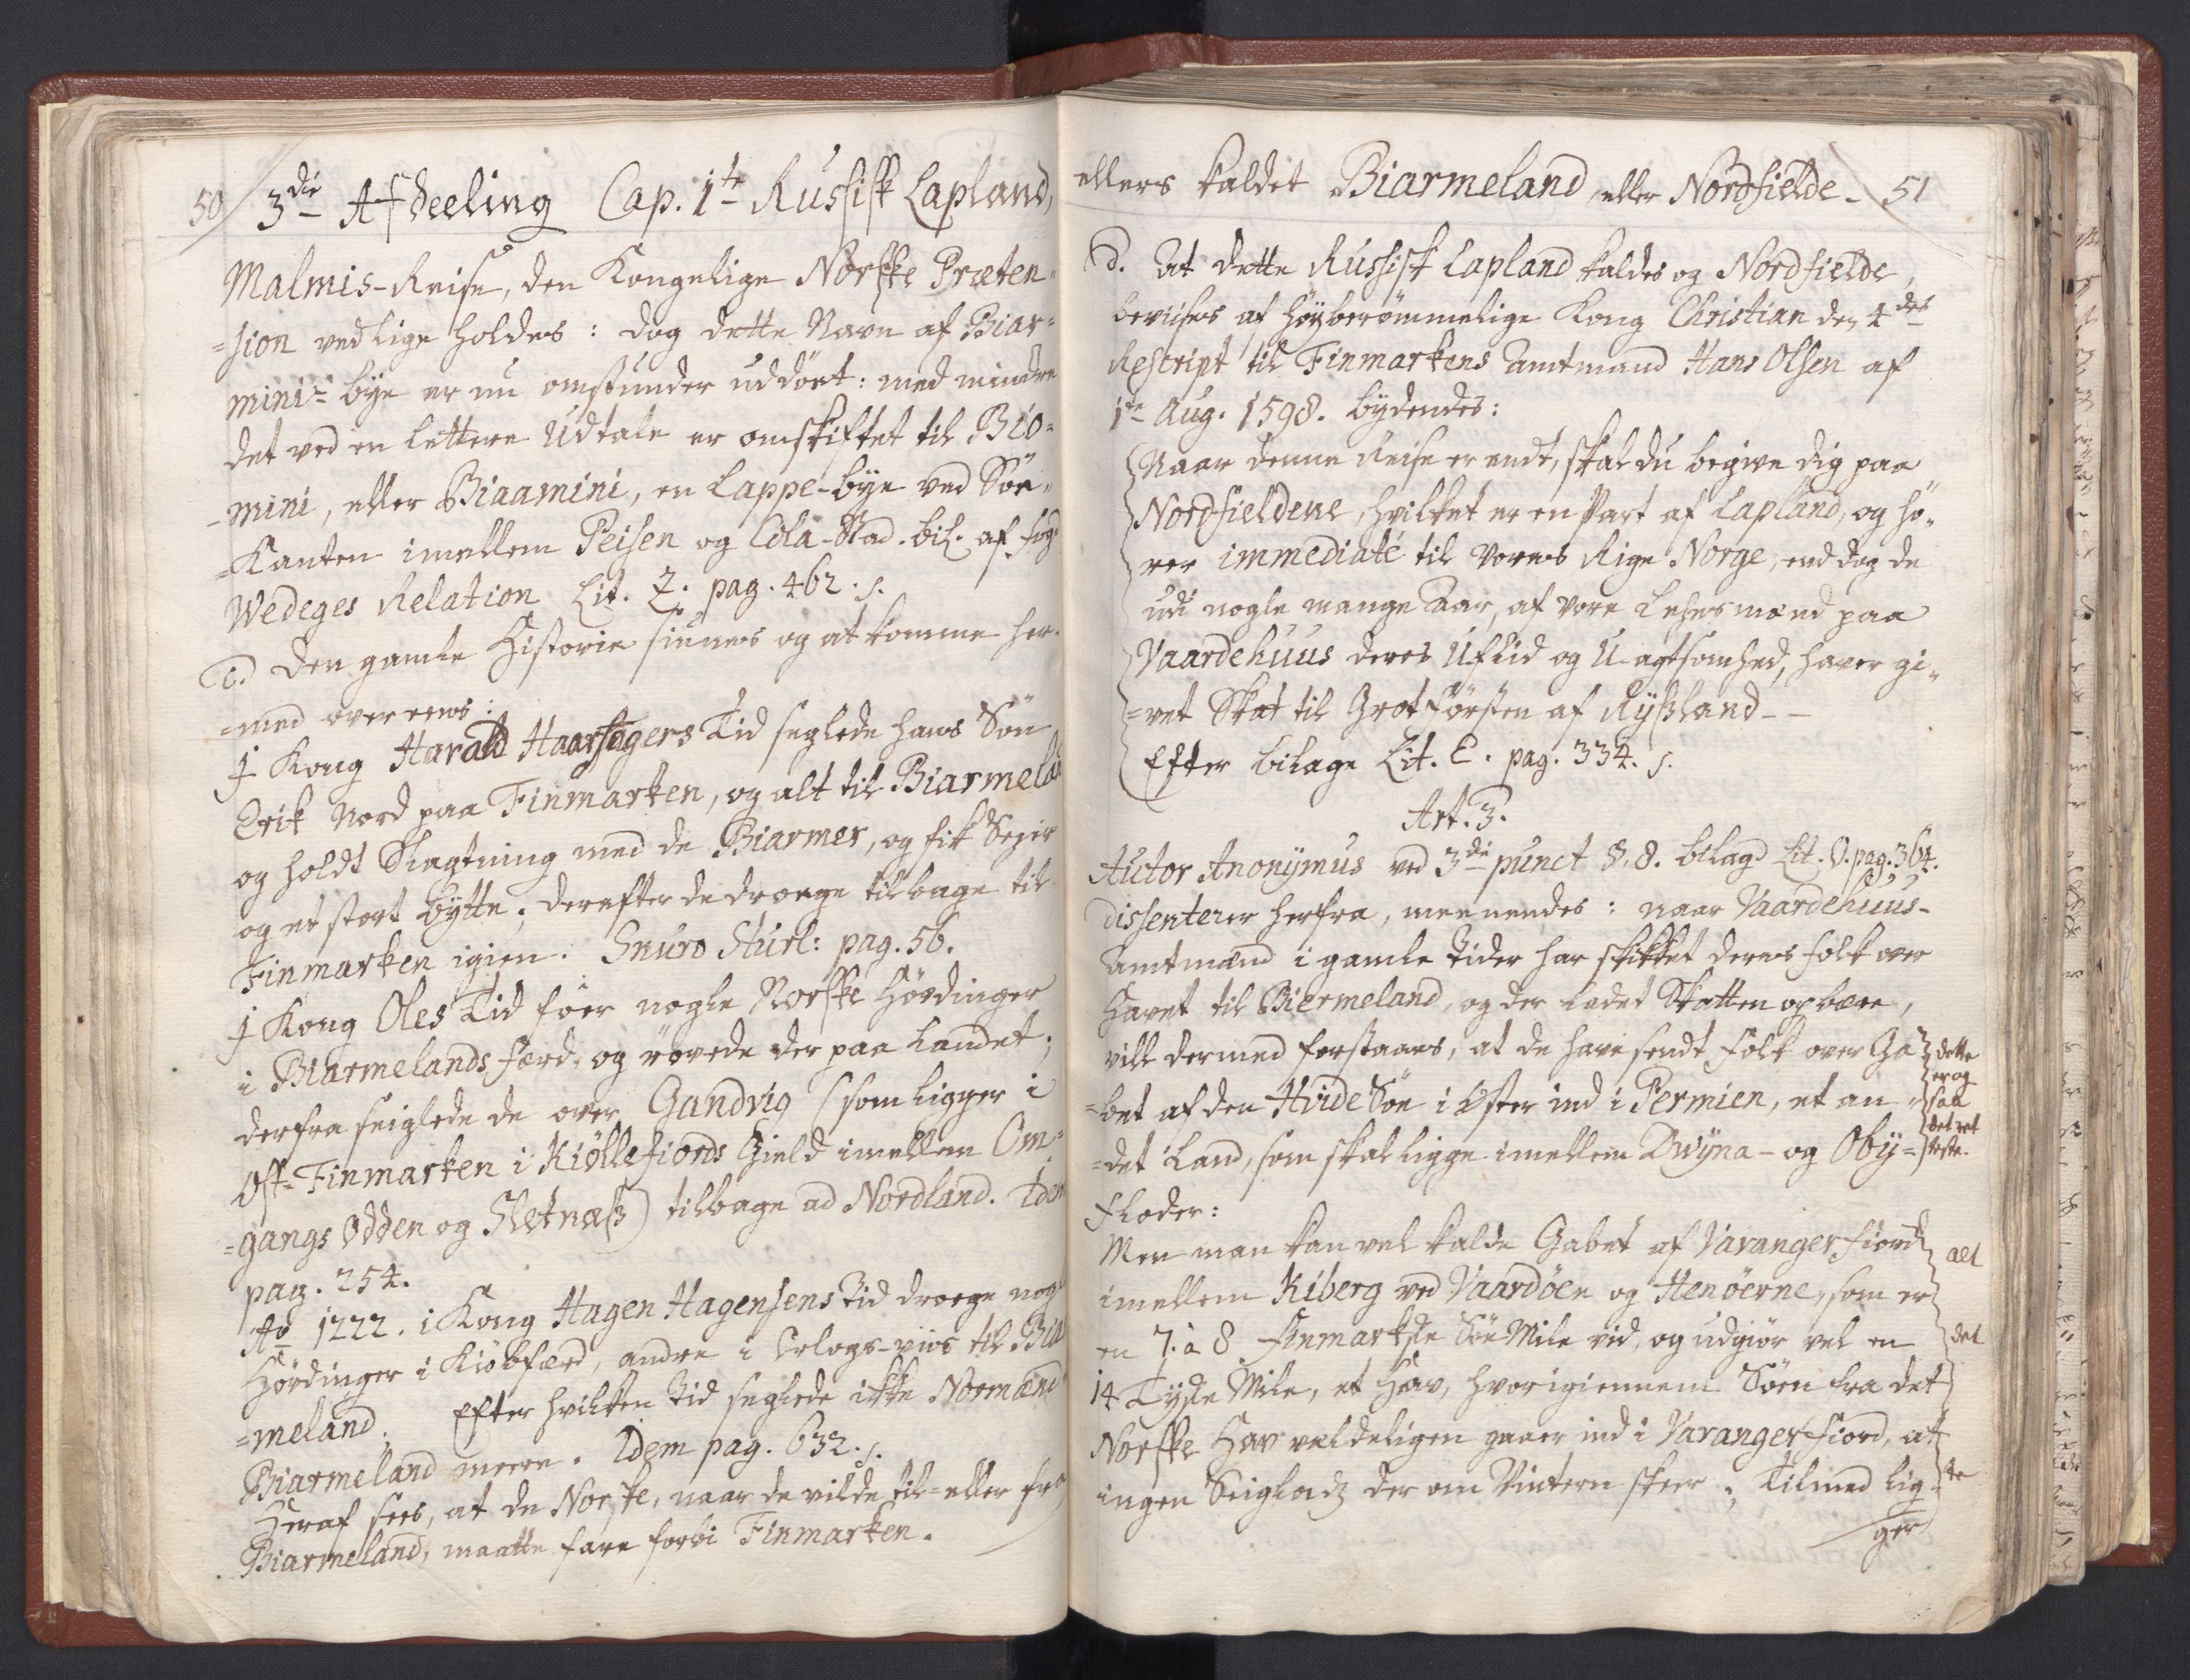 50 3die Afdeeling Cap. 1te Russisk Lapland,
Malmis-Reise, den Kongelige Norske Præten-
=sion ved lige holdes: dog dette Navn af Biar=
mini= bye er nu omstunder uddöet: med mindre
det ved en lettere Udtale er omskiftet til Bio=
-mini, eller Biaamini, en Lappe-bye ved Söe-
=Kanten imellem Peisen og Cola-Stad. bil. af fog.
Wedeges Relation Lit. Z. pag. 462. s.
C. Den gamle Historie siunes og at komme her-
=med over eens:
J Kong Harald Haarfagers Tid seglede hans Sön
Erik Nord paa Finmarken, og alt til Biarmelan
og holdt Slagtning med de Biarmer, og fik Sejer
og et stort bytte; derefter de droege tilbage til
Finmarken igien. Snuro Sturl: pag. 56.
J Kong Oles Tid foer nogle Norske Hövdinger
i Biarmelands færd, og rövede der paa Landet;
derfra seiglede de over Gandvig (som ligger i
Ost-Finmarken i Kiöllefiords Gield imellem Om=
=gangs Odden og Sletnæss) tilbage ad Nordland. Idem
pag. 254.
Ao 1222. i Kong Hagen Hagensens Tid droege nogl
Hövdinger i Kiöbfærd, andre i Orlogs-viis til Bia
=meland. Efter hvilken Tid seglede ikke Normænd
Biarmeland meere. Idem pag. 632. s.
Heraf sees, at de Norske, naar de vilde til- eller fra
Biarmeland, maatte fare forbi Finmarken.
ellers kaldet Biarmeland, eller Nordfielde- 51
d. At dette Russisk Lapland kaldes og Nordfielde,
beviises af höyberömmelige Kong Christian den 4des
Rescript til Finmarkens Amtmand Hans Olsen af
1te Aug. 1598. bydendes:
Naar denne Reise er endt, skal du begive dig paa
Nordfieldene, hvilket er en Part af Lapland, og hö-
rer immediaté til Vores Rige Norge, end dog de
udi nogle mange Aar, af vore Lehnsmænd paa
Vaardehuus deres Uflid og U-agtsomhed, haver gi-
=vet Skat til Grot Försten af Rysland--
Efter bilage Lit. E. pag. 334. s.
Art. 3.
Autor Anonymus ved 3die punct 8. 8. bilagd Lit. O. pag. 364.
dissenterer herfra, meenendes: naar Vaardehuus-
Amtmænd i gamle Tider har skikket deres folk over
Havet til Biermeland, og der ladet Skatten opbære,
vill dermed forstaaes, at de have sendt folk over Ga-
=bet af den Hvide Söe i Öster ind i Permien, et an-
=det Land, som skal ligge imellem Dwyna- og Oby=
floder:
dette
er og
saa
det ret
teste.
Men man kan vel kalde Gabet af Varanger fiord
imellem Kiberg ved Vaardöen og Henöerne, som er
en 7. à 8 Finmarkske Söe Mile vid, og udgiör vel en
14 Tyske Mile, et Hav, hvorigiennem Söen fra det
Norske Hav veldeligen gaaer ind i Varanger fiord, at
ingen Seiglads der om Vintern skeer; Tilmed lig-
ger
alt
det
te